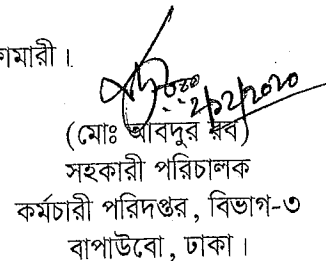 মারী।
২/১২/২০২০
(মোঃ আবদুর রব)
সহকারী পরিচালক
কর্মচারী পরিদপ্তর, বিভাগ-৩
বাপাউবো, ঢাকা।